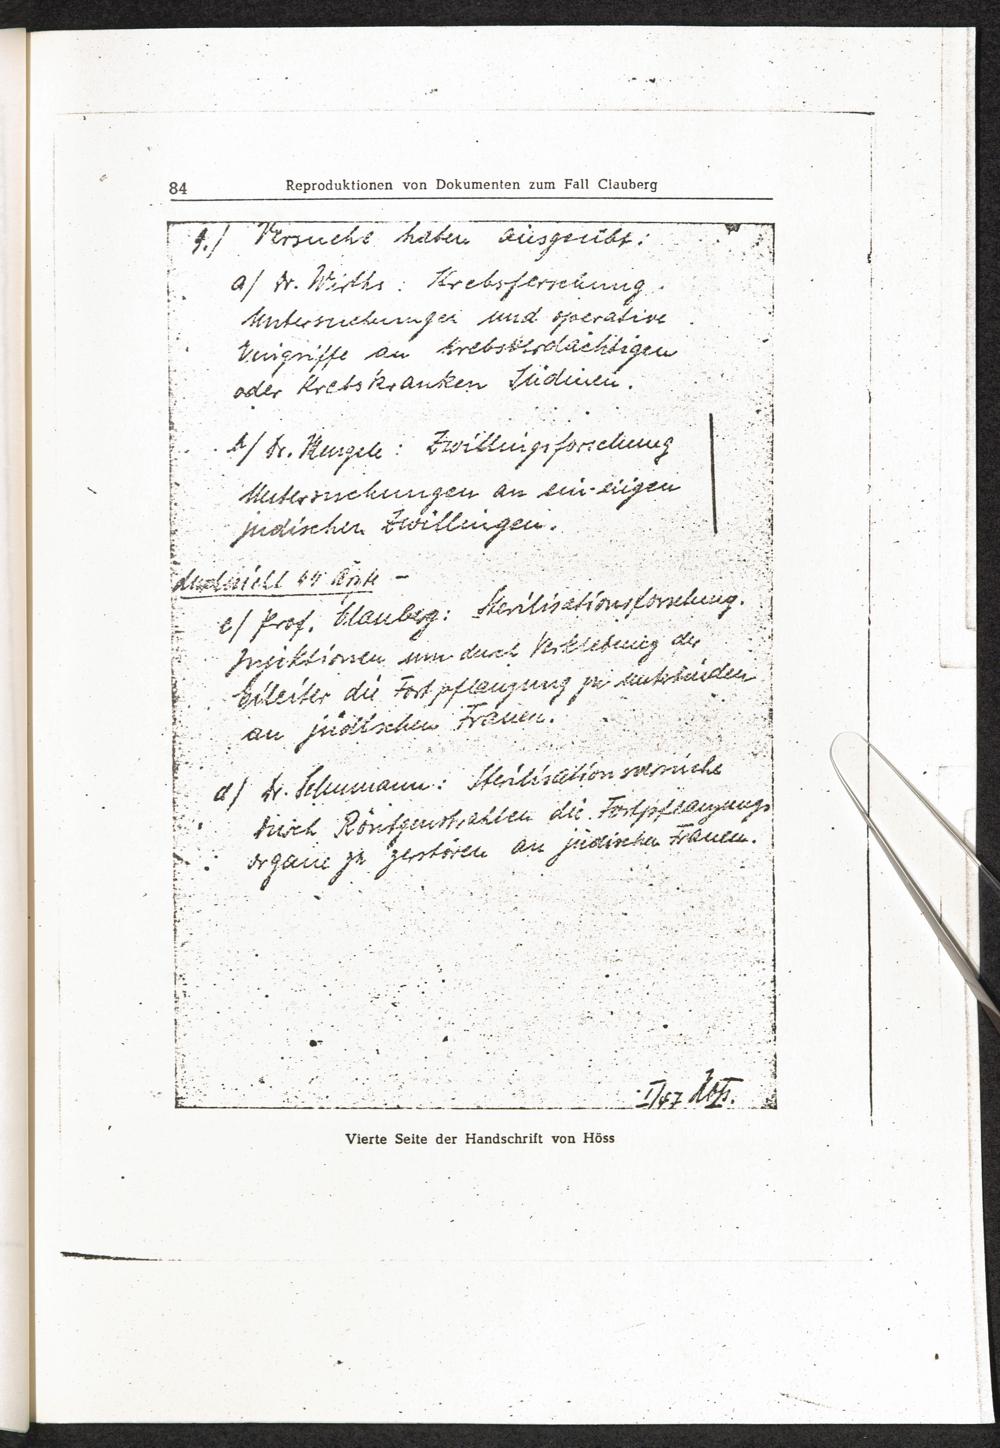 84
Reproduktionen von Dokumenten zum Fall Clauberg
9.) Versuche haben ausgeübt:
a) Dr. Wirths: Krebsforschung.
Untersuchungen und operative
Eingriffe an Krebsverdächtigen
oder Krebskranken Jüdinen.
b) Dr. Mengele: Zwillingsforschung
Untersuchungen an ein-eiigen
jüdischen Zwillingen.
SS Ärzte –
c) Prof. Clauberg: Sterilisationsforschung.
Injektionen um durch Verklebung der
Eileiter die Fortpflanzung zu unterbinden
an jüdischen Frauen.
d) Dr. Schumann: Sterilisationsversuche
durch Röntgenstrahlen die Fortpflanzungs
organe zu zerstören an jüdischen Frauen.
I/47 Höß.
Vierte Seite der Handschrift von Höss